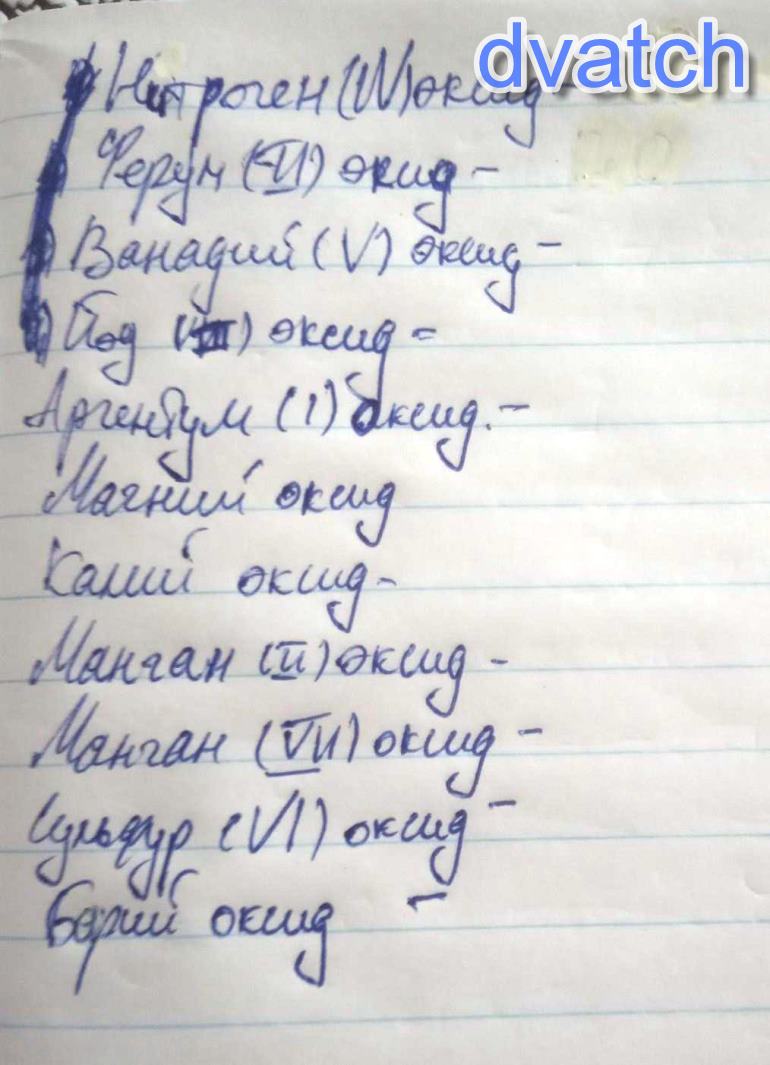 dvatch
Нітроген (IV) оксид -
Ферум (VI) окид -
Ванадий (V) оксид -
Йод (III) оксид =
Аргентум (I) оксид. -
Магний оксид
Калий оксид -
Манган (II) оксид -
Манган (VII) оксид -
Сульфур (VI) оксид -
Барий оксид -